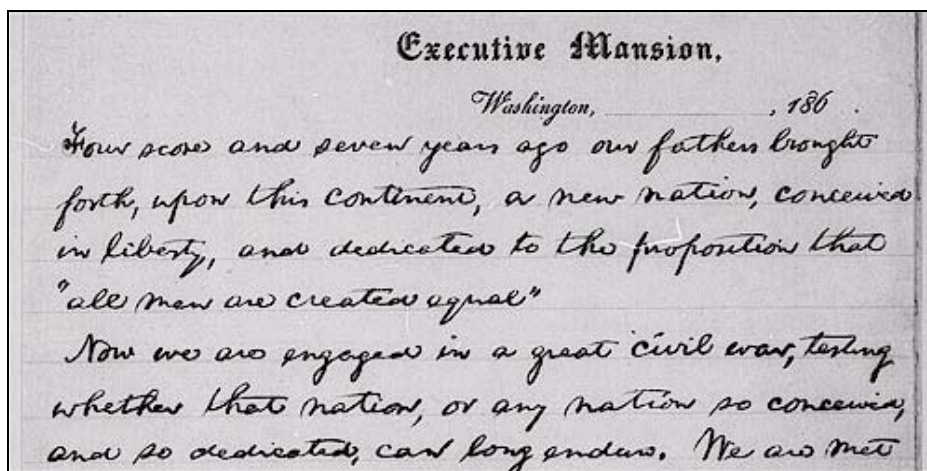 Executive Mansion,
Washington, , 186 .
Four score and seven years ago our fathers brought
forth, upon this continent, a new nation, conceived
in liberty, and dedicated to the proposition that
"all men are created equal"
Now we are engaged in a great civil war, testing
whether that nation, or any nation so conceived,
and so dedicated, can long endure. We are met